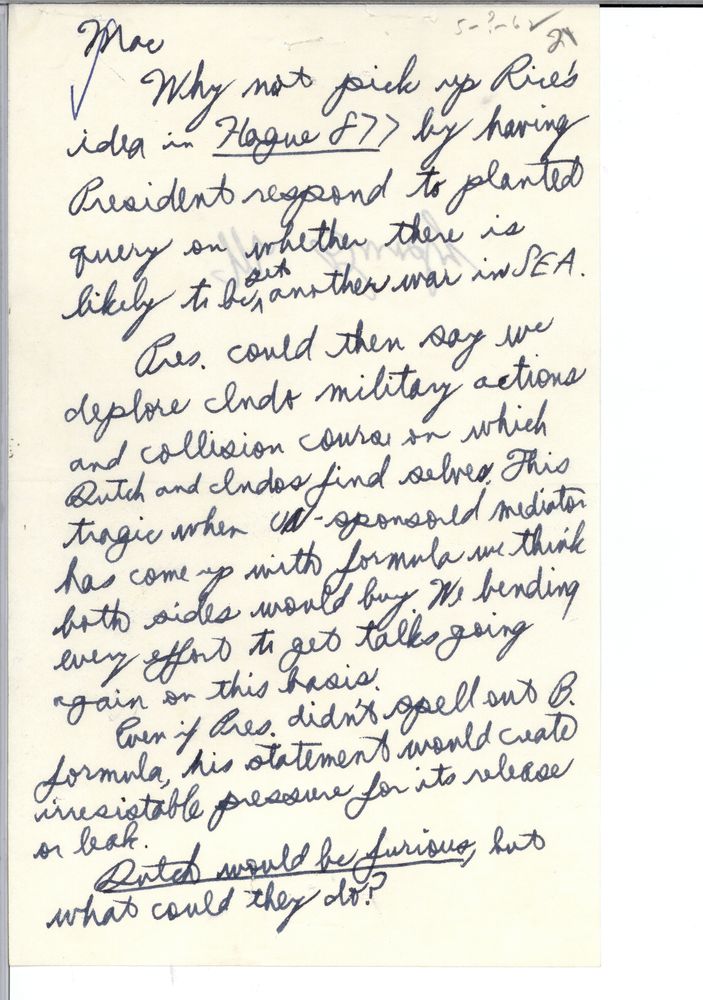 5-?-62
2
Mac
Why not pick up Rice's
idea in Hague 877 by having
President respond to planted
query on whether there is
likely to be yet another war in SEA.
Pres. could then say we
deplore Indo military actions
and collision course on which
Dutch and Indos find selves. This
tragic when UN-sponsored mediator
has come up with formula we think
both sides would buy. We bending
every effort to get talks going
again on this basis.
Even if Pres. didn't spell out B.
formula, his statement would create
irresistable pressure for its release
or leak.
Dutch would be furious, but
what could they do?